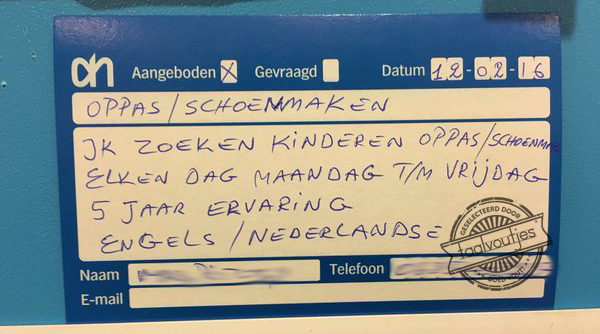 ah Aangeboden X Gevraagd Datum 12-02-16
OPPAS/SCHOENMAKEN
JK ZOEKEN KINDEREN OPPAS/SCHOENMA
ELKEN DAG MAANDAG T/M VRIJDAG
5 JAAR ERVARING
ENGELS/NEDERLANDSE
GESELECTEERD DOOR
taalvoutjes
Naam Telefoon
E-mail